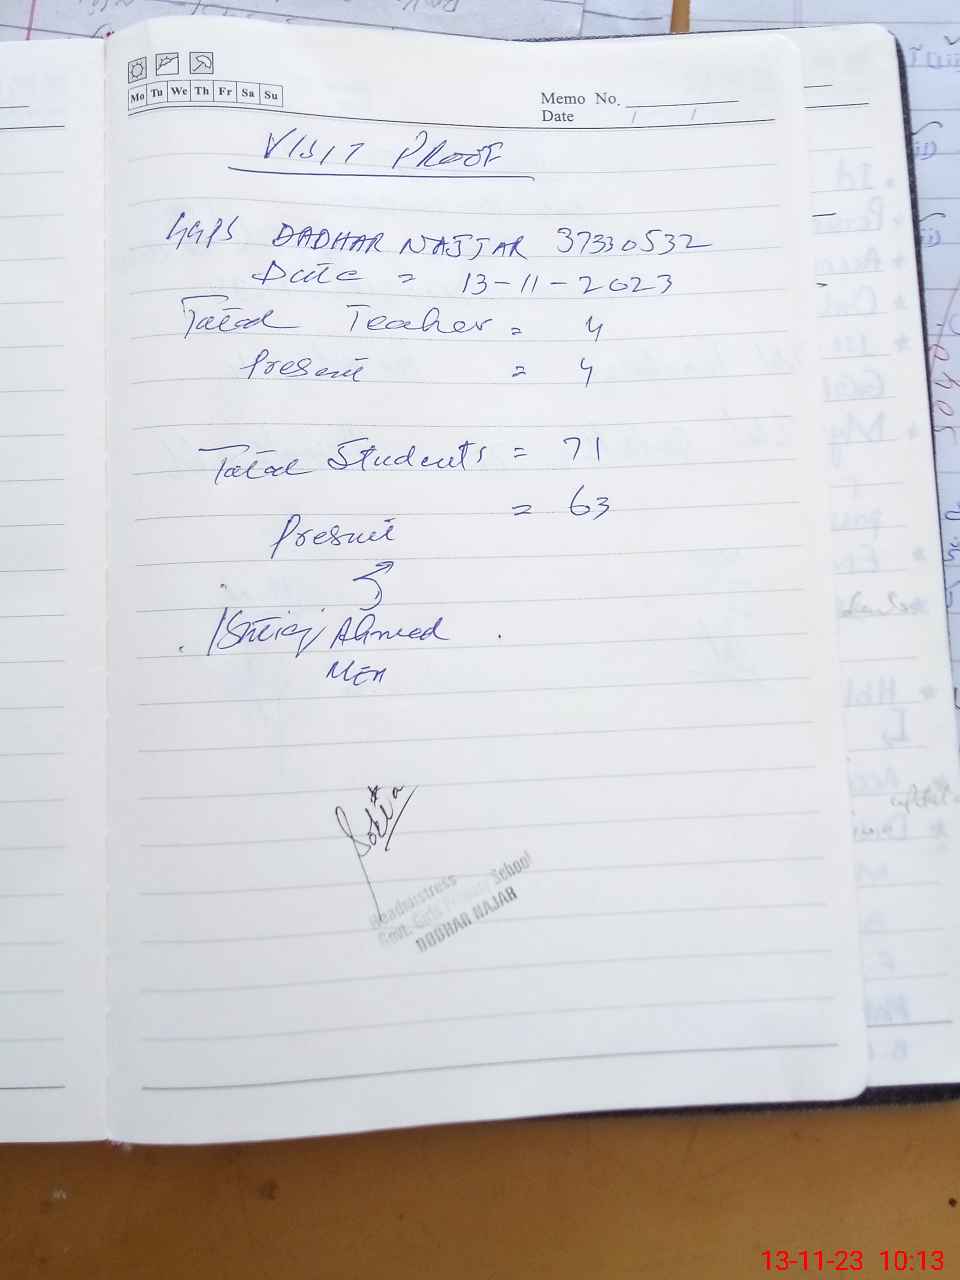 Mo Tu We Th Fr Sa Su
Memo No.
Date / /
VISIT PROOF
GGPS DADHAR NAJJAR 37330532
Date = 13-11-2023
Total Teacher = 4
Present = 4
Total Students = 71
Present = 63
Ahmed
MEA
Headmistress
Govt. Girls Primary School
DODHAR NAJAR
13-11-23 10:13